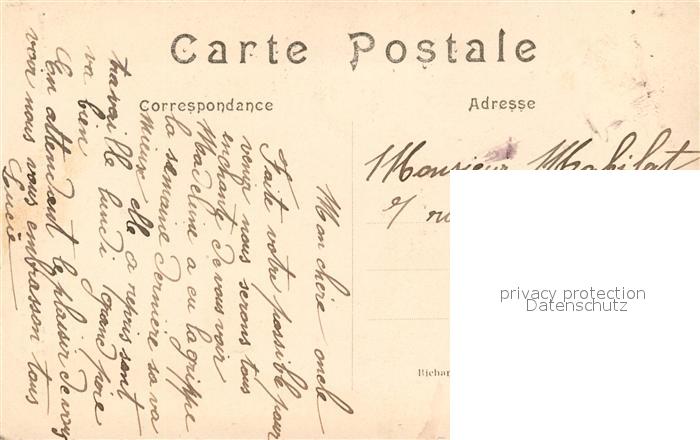 Carte Postale
Correspondance
Adresse
Mon chère oncle
Faite votre possible pour
venir nous serons tous
enchanté de vous voir
Madeleine a eu la grippe
la semaine dernière sa va
mieux elle a repris sont
travaille lundi grand père
va bien
En attendant le plaisir de vous
voir nous vous embrasson tous
Lucie
Monsieur Mabilat
privacy protection
Datenschutz